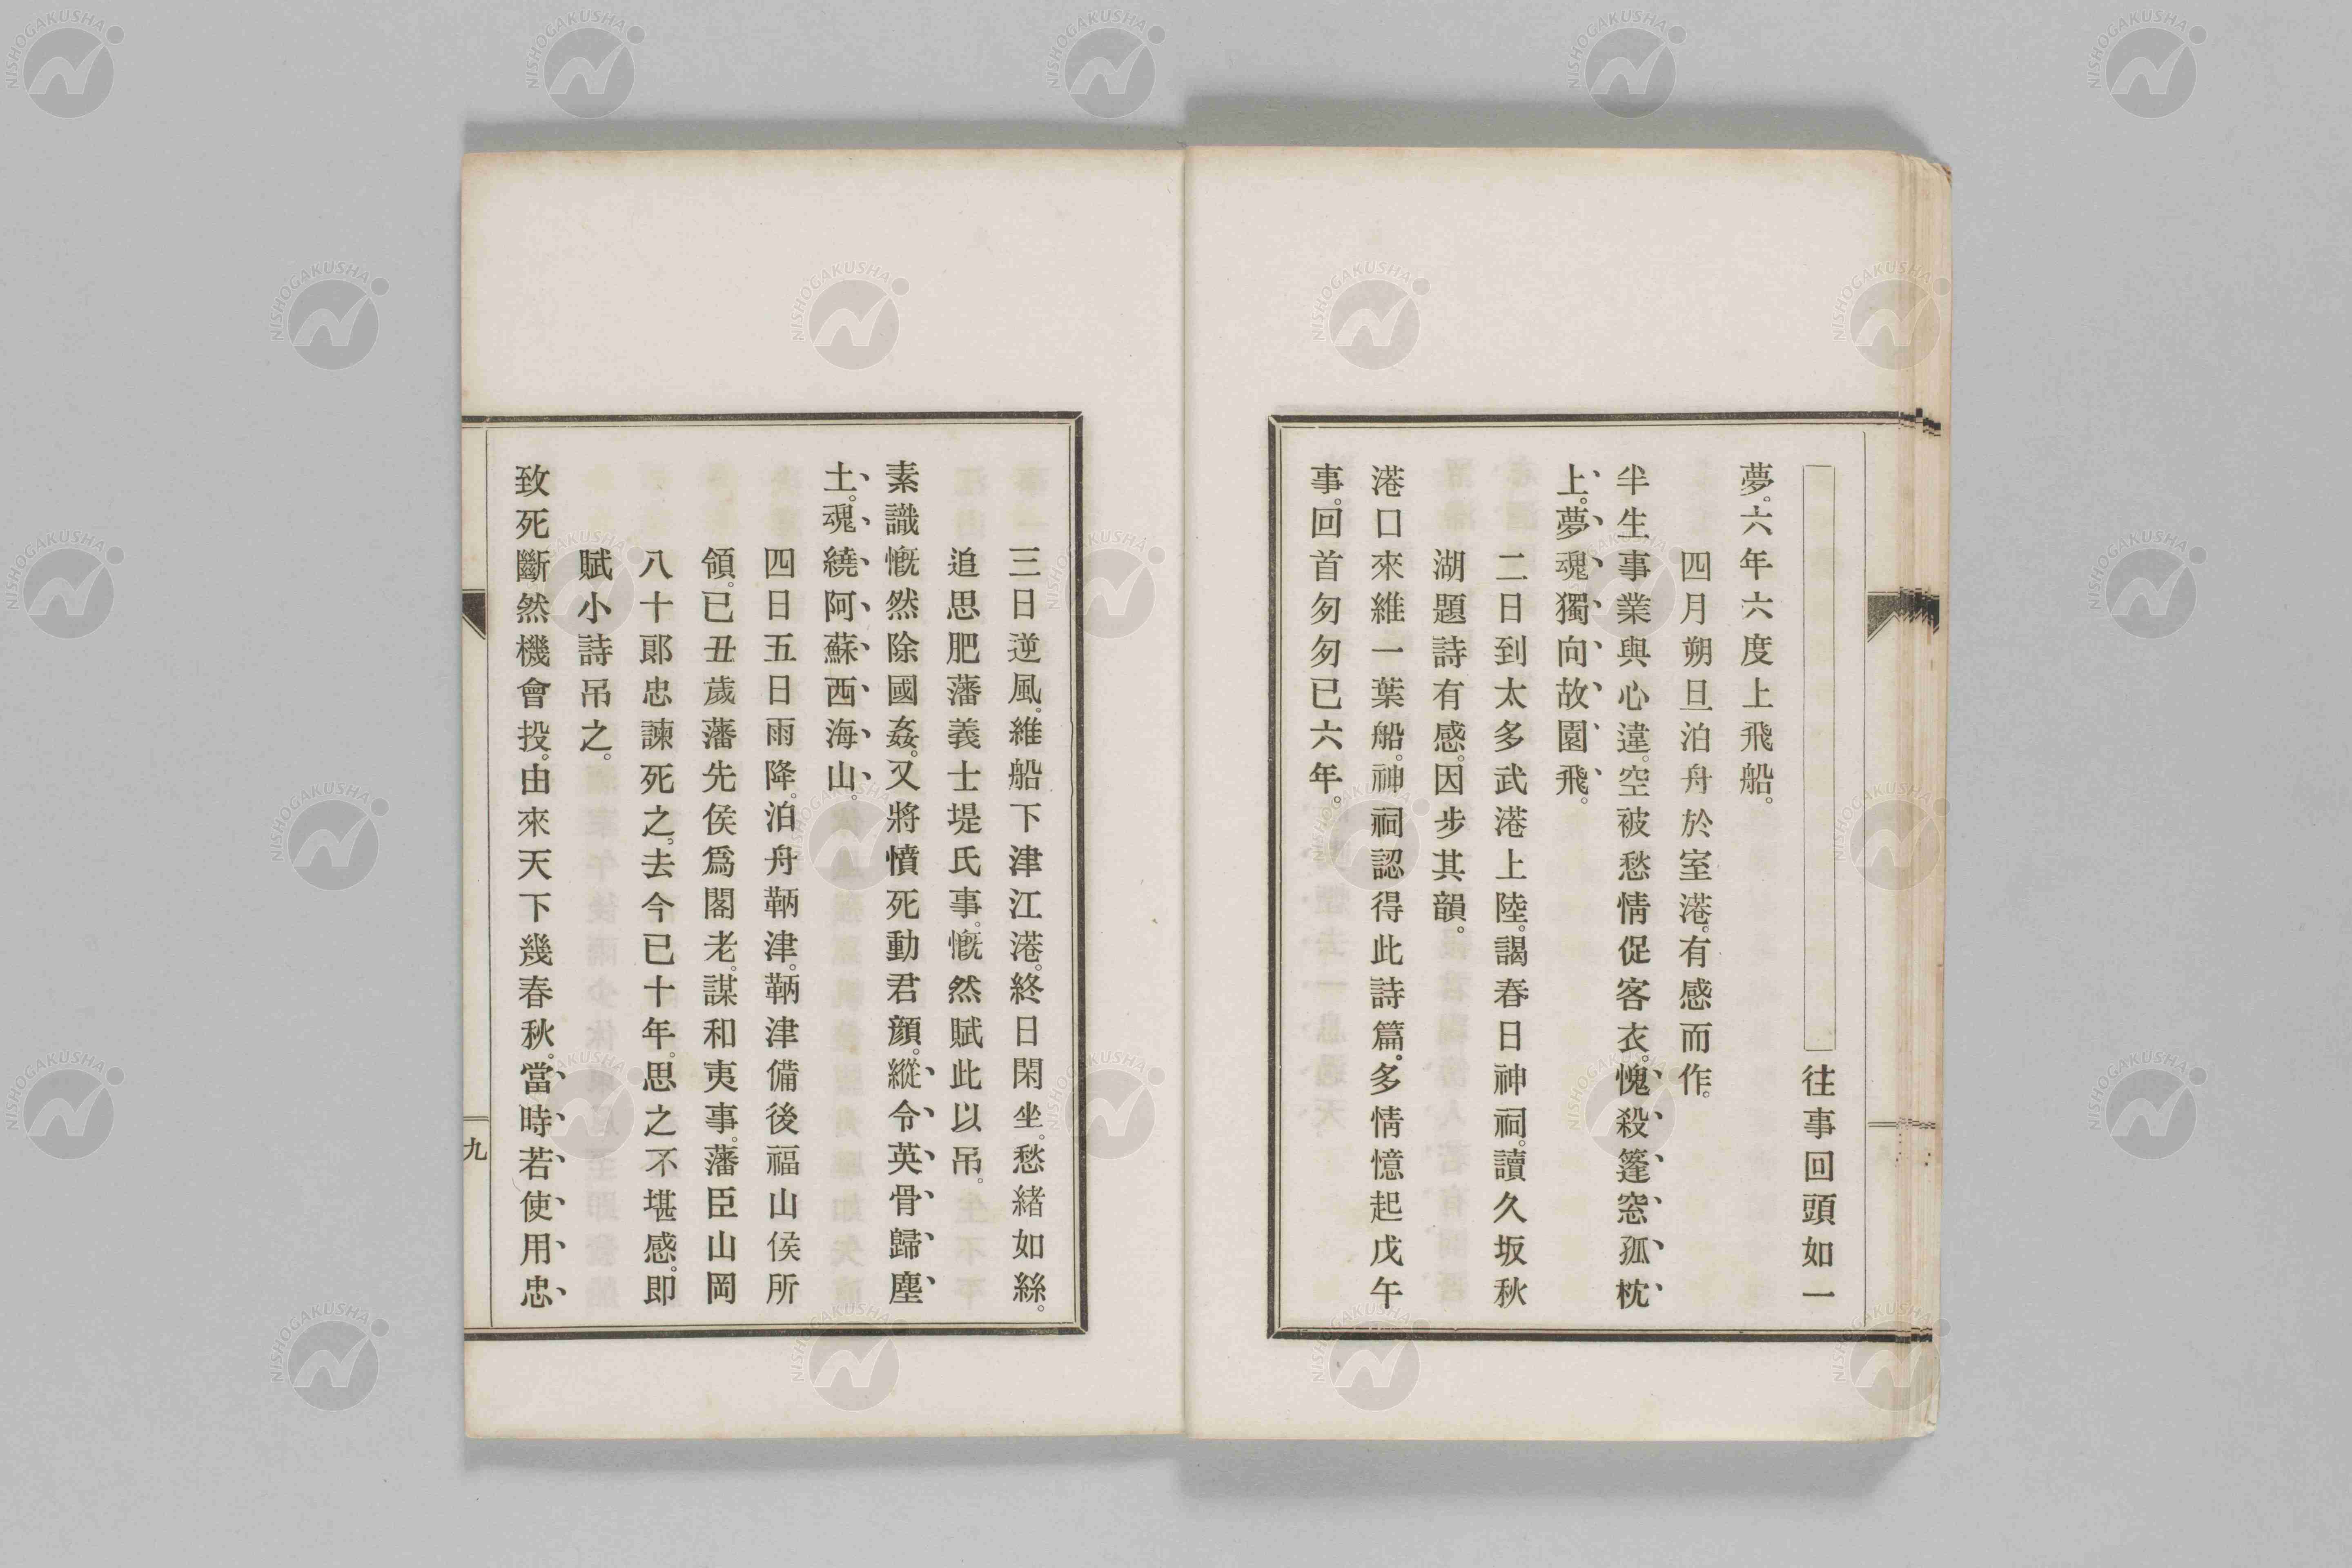 往事回頭如一
夢。六年六度上飛船。
四月朔旦泊舟於室港。有感而作。
半生事業與心違。空被愁情促客衣。愧殺篷窓孤枕
上。夢魂獨向故園飛。
二日到太多武港上陸。謁春日神祠。讀久坂秋
湖題詩有感。因步其韻。
港口來維一葉船。神祠認得此詩篇。多情憶起戊午
事。回首匆匆已六年。
三日逆風。維船下津江港。終日閑坐。愁緒如絲。
追思肥藩義士堤氏事。慨然賦此以吊。
素識慨然除國姦。又將憤死動君顏。縱令英骨歸塵
土。魂繞阿蘇西海山。
四日五日雨降。泊舟鞆津。鞆津備後福山侯所
領。已丑歲藩先侯爲閣老。謀和夷事。藩臣山岡
八十郎忠諫死之。去今已十年。思之不堪感。即
賦小詩吊之。
致死斷然機會投。由來天下幾春秋。當時若使用忠
九
NISHOGAKUSHA